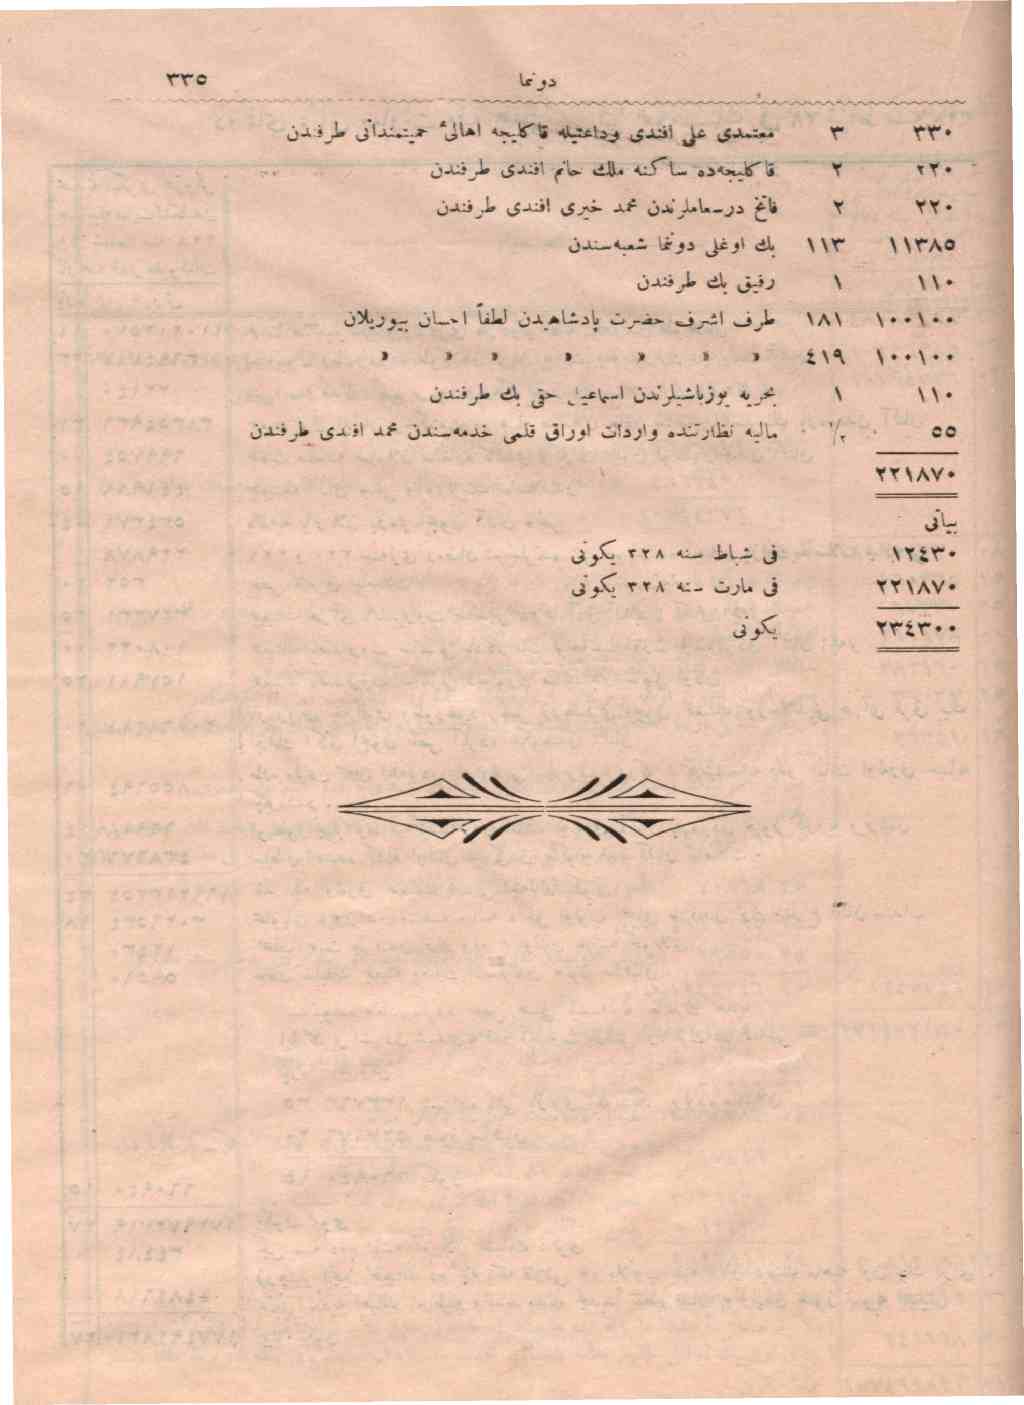 دوننما ٣٣٥
٣٣٠ ٣ معتمدی علی افندی وداعتیله قاكلیجه اهالیٔ حمیتمندانی طرفندن
٢٢٠ ٢ قاكلیجه‌ده ساكنه ملك خانم افندی طرفندن
٢٢٠ ٢ فاتح درسعاملرندن محمد خیری افندی طرفندن
١١٣٨٥ ١١٣ بك اوغلی دوننما شعبه‌سندن
١١٠ ١ رفیق بك طرفندن
١٠٠١٠٠ ١٨١ طرف اشرف حضرت پادشاهیدن لطفاً احسان بیوریلان
١٠٠١٠٠ ٤١٩ » » » » » » »
١١٠ ١ بحریه یوزباشیلرندن اسماعیل حقی بك طرفندن
٥٥ ١/٢ مالیه نظارتنده واردات اوراق قلمی خدمه‌سندن محمد افندی طرفندن
٢٢١٨٧٠
بیانی
١٢٤٣٠ فی شباط سنه ٣٢٨ یكونی
٢٢١٨٧٠ فی مارت سنه ٣٢٨ یكونی
٢٣٤٣٠٠ یكونی